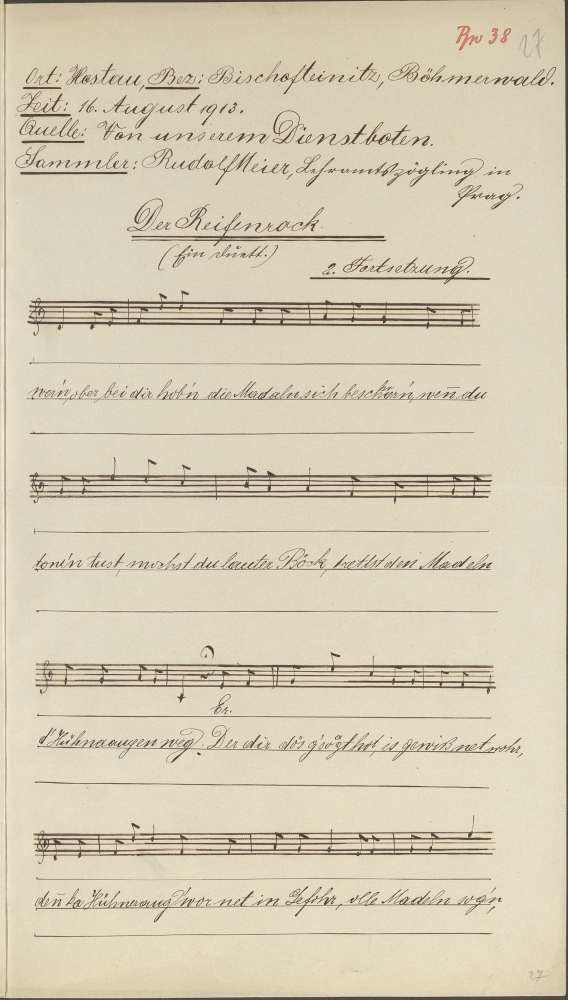 Bw 38 27
Ort: Hostau, Bez: Bischofteinitz, Böhmerwald.
Zeit: 16. August 1913.
Quelle: Von unserem Dienstboten.
Sammler: Rudolf Meier, Lehramtszögling in
Prag.
Der Reifenrock.
(Ein Duett.)
2. Fortsetzung.
wer'n, ober bei dir hob'n die Madaln sich beschwer'n, wen̄ du
tonz'n tust, mochst du lauter Böck, trettst den Madeln
Er.
d' Hühnaaugen weg. Der dir dös g'sogt hot, is gewiß net wohr,
den̄ ka Hühnaaug' wor net in Gefohr, olle Madeln sog'n,
27